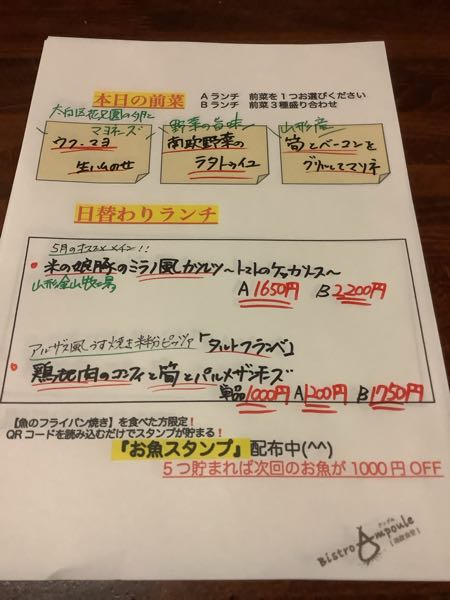 本日の前菜
Aランチ 前菜を1つお選びください
Bランチ 前菜3種盛り合わせ
太白区花兄園の卵と
マヨネーズ
ウフ・マヨ
生ハムのせ
野菜の旨味
南欧野菜の
ラタトゥイユ
山形産
筍とベーコンを
グリルしてマリネ
日替わりランチ
5月のオススメメイン!!
米の娘豚のミラノ風カツレツ〜トマトのケッカソース〜
山形金山牧場
A 1650円 B 2,200円
アルザス風うす焼き米粉ピッツァ「タルトフランベ」
鶏もも肉のコンフィと筍とパルメザンチーズ
単品1000円 A1200円 B1750円
【魚のフライパン焼き】を食べた方限定!
QRコードを読み込むだけでスタンプが貯まる!
『お魚スタンプ』配布中(^^)
5つ貯まれば次回のお魚が1000円OFF
Bistro Ampoule
アンプル